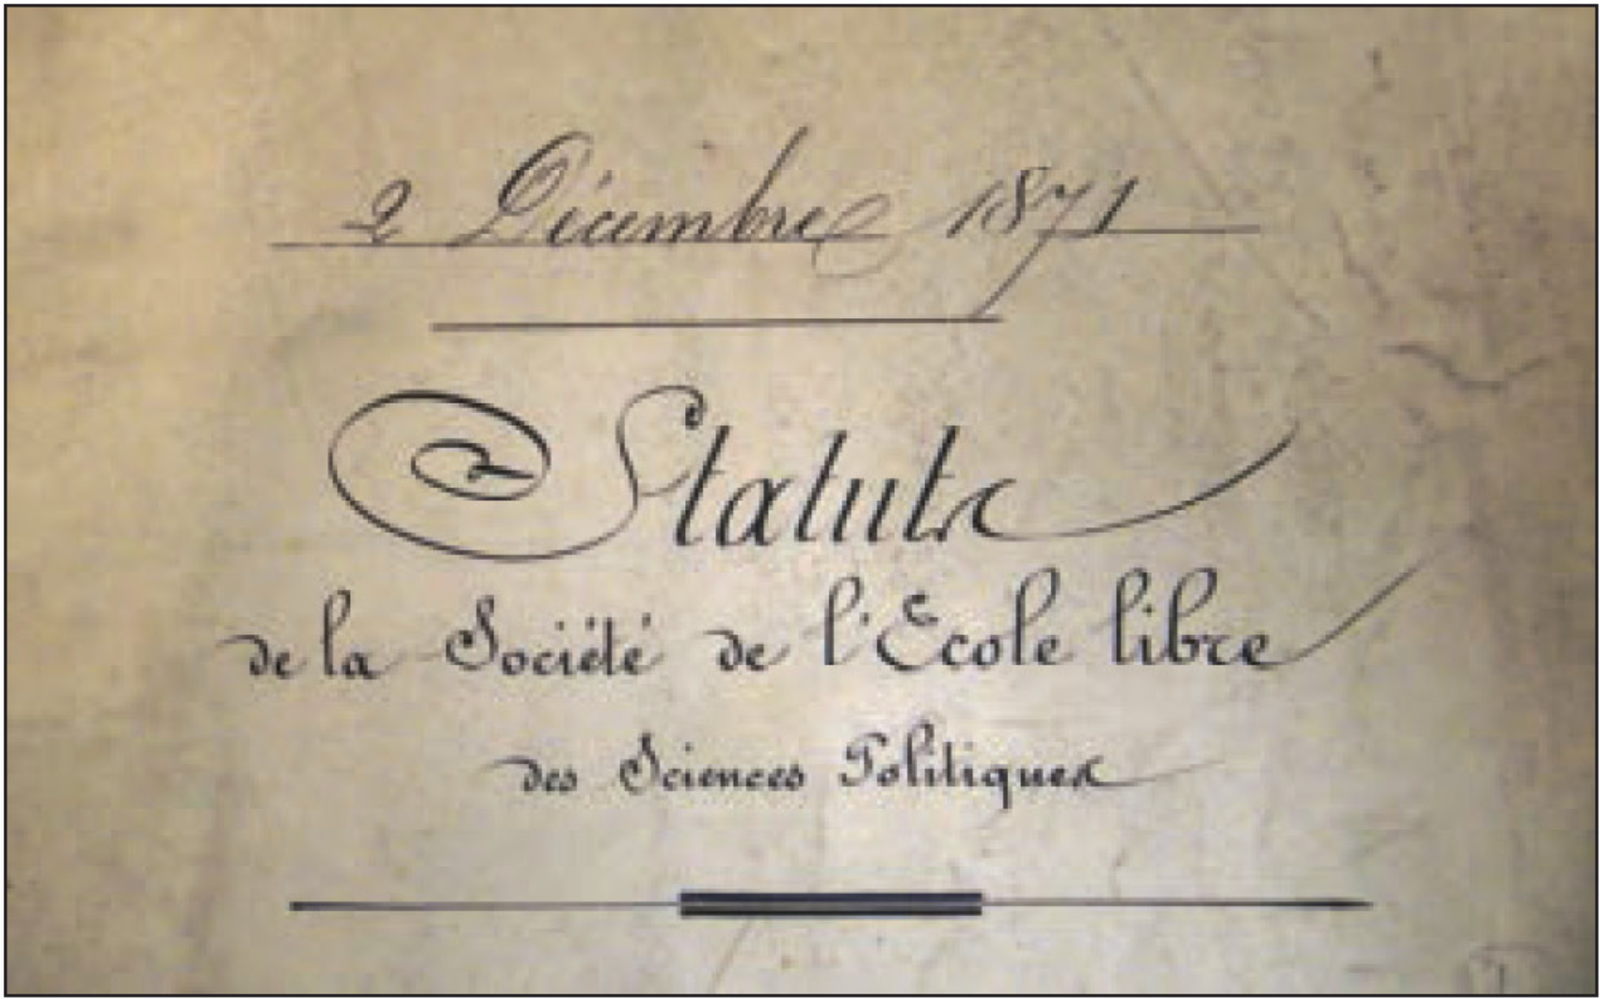 2 Décembre 1871
Statuts
de la Société de l'Ecole libre
des Sciences Politiques